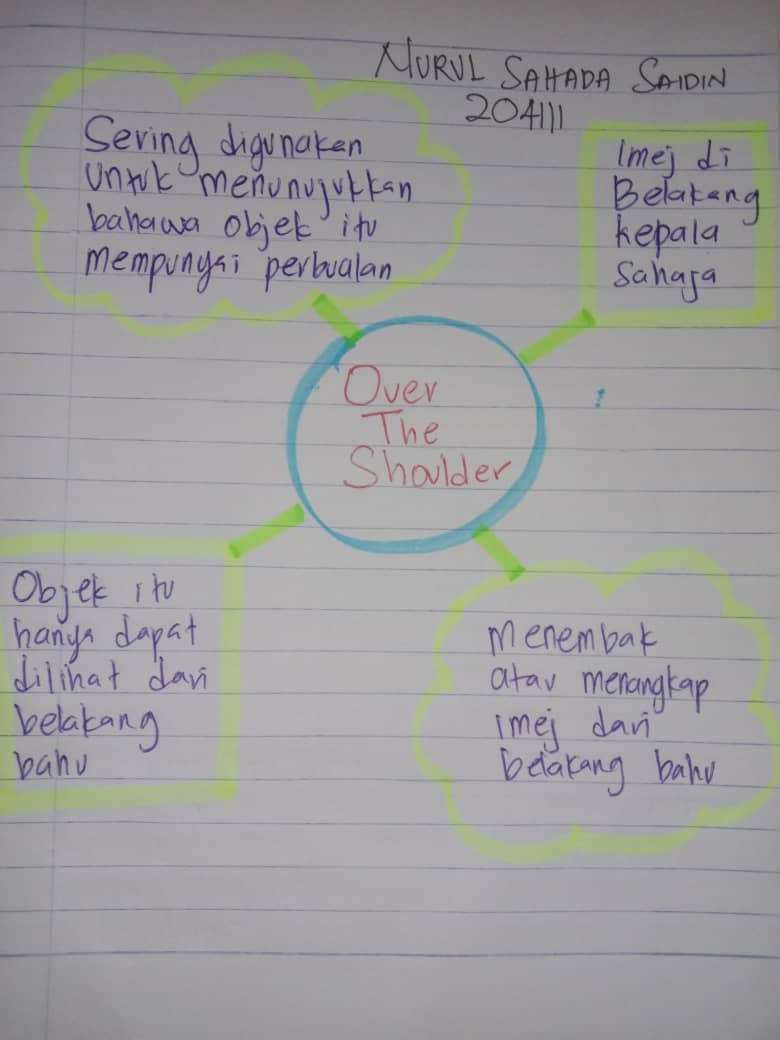 NURUL SAHADA SAIDIN
204111
Sering digunakan
untuk menunujukkan
bahawa objek itu
mempunyai perbualan
Imej di
Belakang
kepala
Sahaja
Over
The
Shoulder
Objek itu
hanya dapat
dilihat dari
belakang
bahu
Menembak
atau menangkap
imej dari
belakang bahu